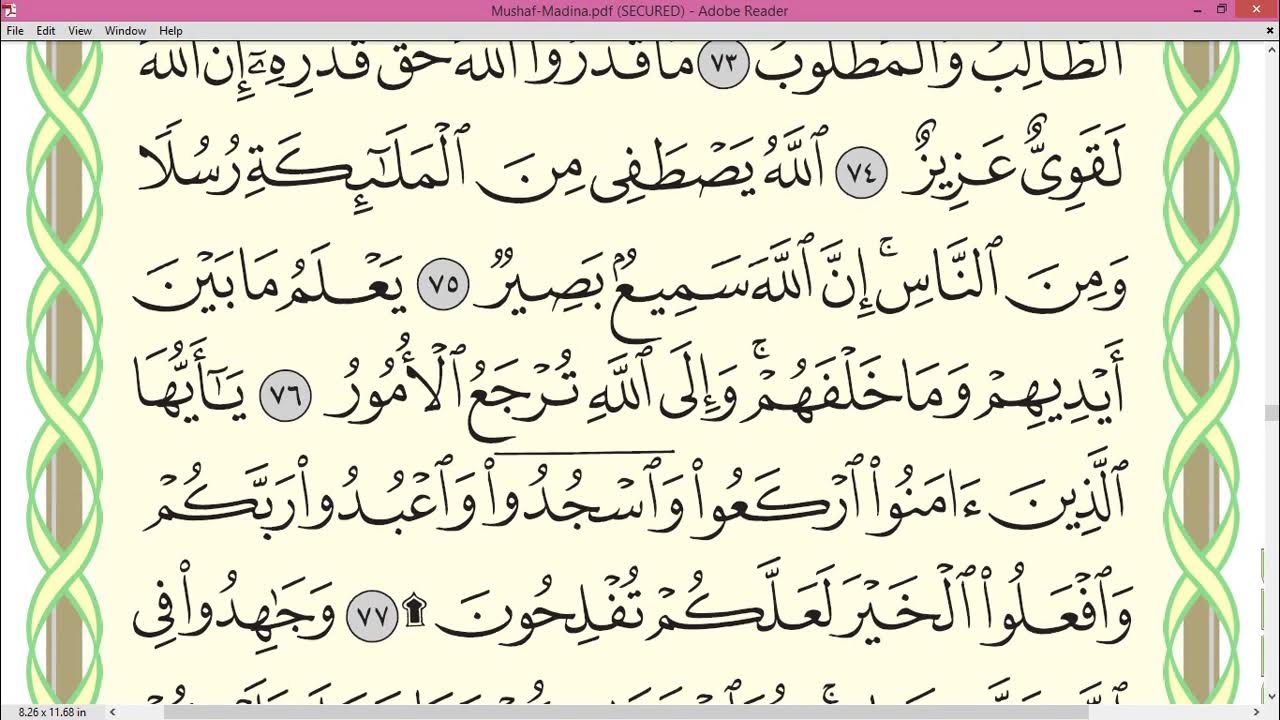 Mushaf-Madina.pdf (SECURED) - Adobe Reader
File Edit View Window Help
ٱلطَّالِبُ وَٱلْمَطْلُوبُ ٧٣ مَا قَدَرُوا۟ ٱللَّهَ حَقَّ قَدْرِهِۦٓ إِنَّ ٱللَّهَ
لَقَوِىٌّ عَزِيزٌ ٧٤ ٱللَّهُ يَصْطَفِى مِنَ ٱلْمَلَٰٓئِكَةِ رُسُلًا
وَمِنَ ٱلنَّاسِ ۚ إِنَّ ٱللَّهَ سَمِيعٌۢ بَصِيرٌ ٧٥ يَعْلَمُ مَا بَيْنَ
أَيْدِيهِمْ وَمَا خَلْفَهُمْ ۚ وَإِلَى ٱللَّهِ تُرْجَعُ ٱلْأُمُورُ ٧٦ يَٰٓأَيُّهَا
ٱلَّذِينَ ءَامَنُوا۟ ٱرْكَعُوا۟ وَٱسْجُدُوا۟ وَٱعْبُدُوا۟ رَبَّكُمْ
وَٱفْعَلُوا۟ ٱلْخَيْرَ لَعَلَّكُمْ تُفْلِحُونَ ۩ ٧٧ وَجَٰهِدُوا۟ فِى
8.26 x 11.68 in